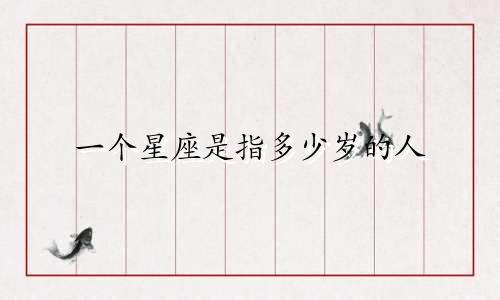 一个星座是指多少岁的人